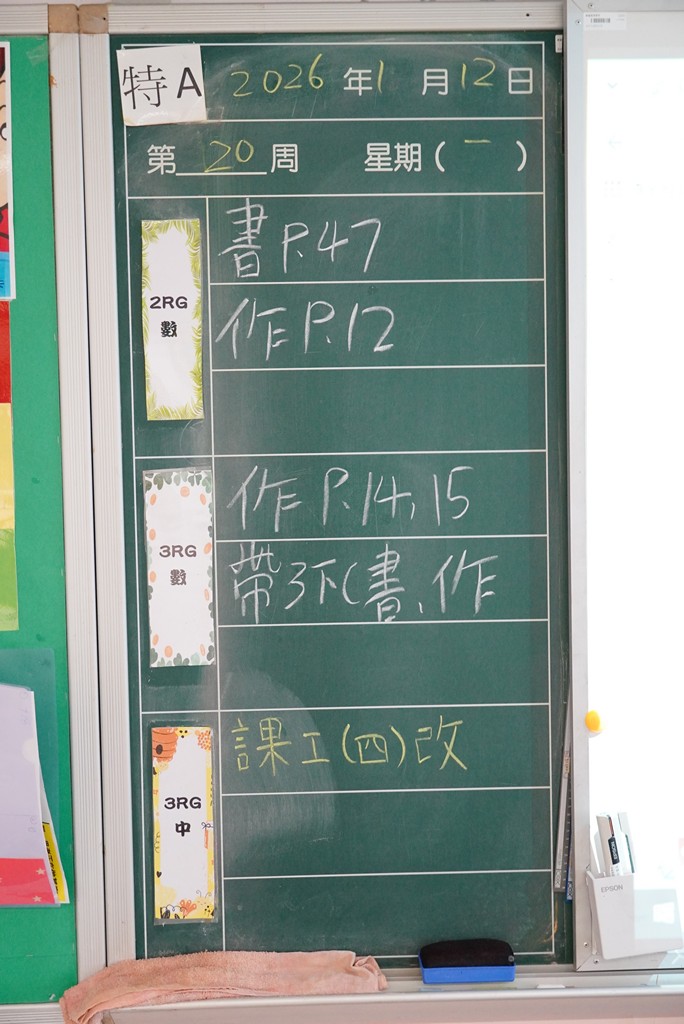 特A 2026年1月12日
第20周 星期(一)
2RG
數
書P.47
作P.12
3RG
數
作P.14,15
帶3下(書、作
3RG
中
課工(四)改
EPSON